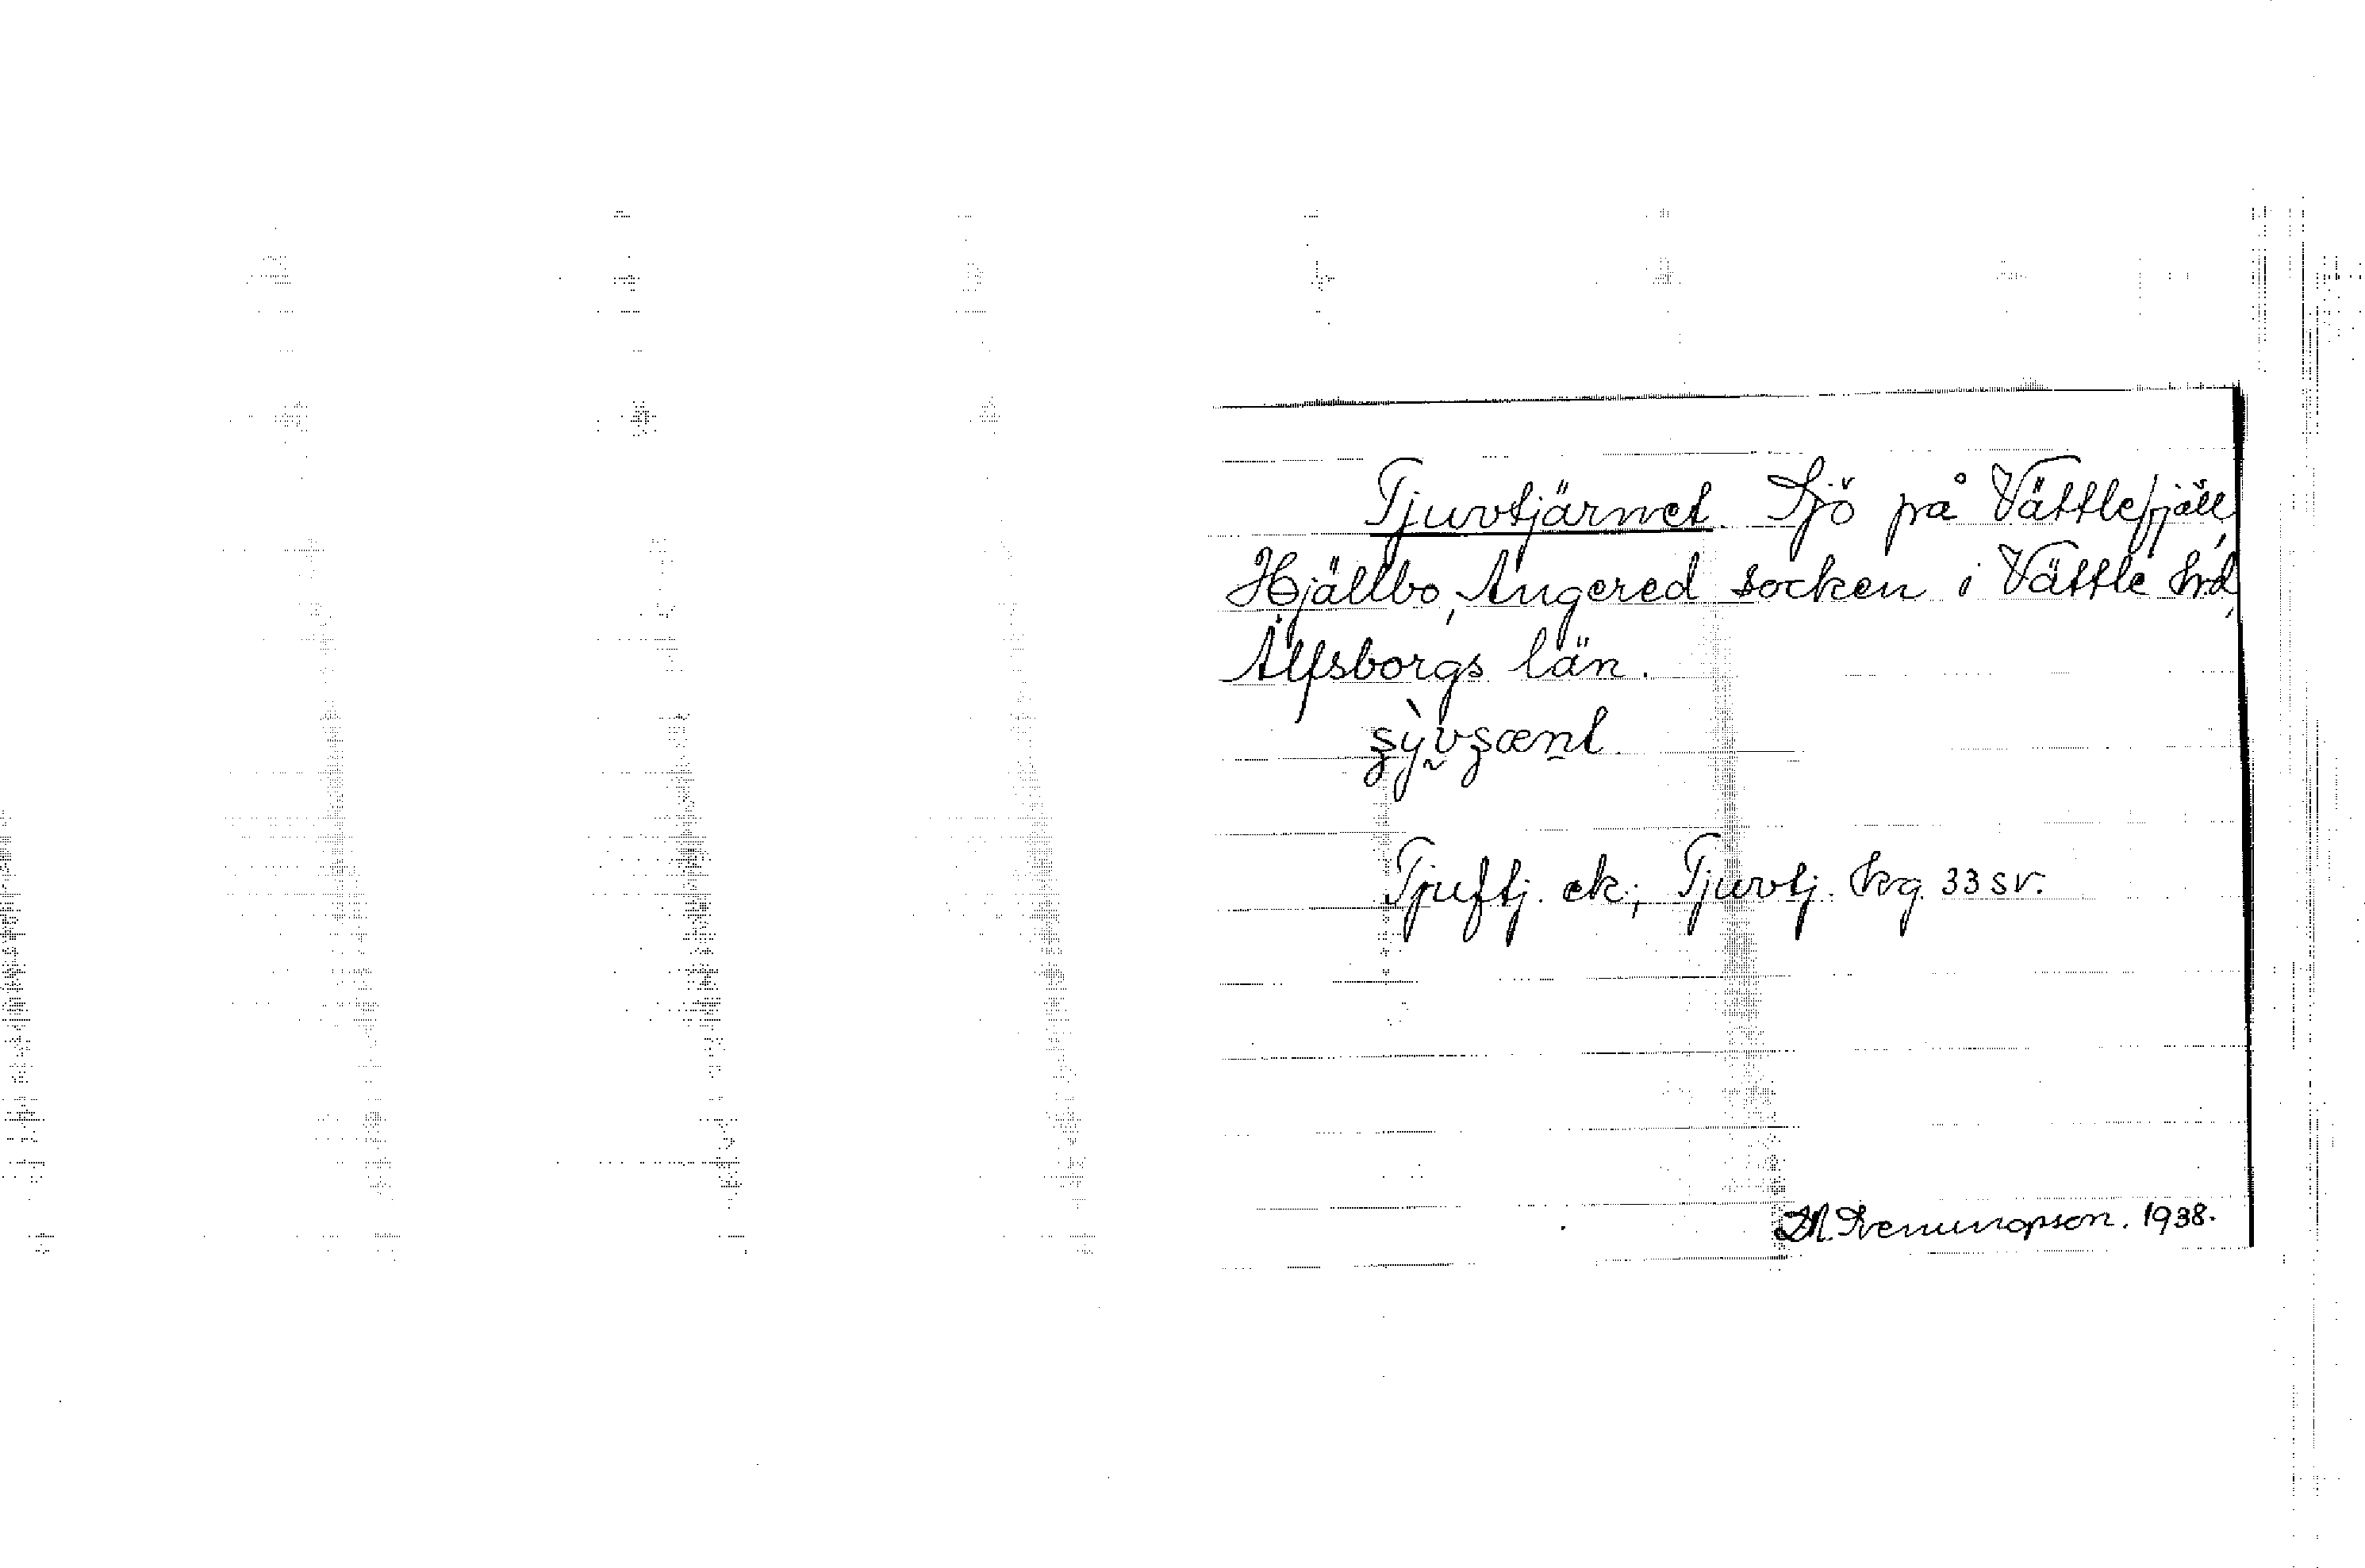 Tjuvtjärnet. Sjö på Vättlefjäll,
Hjällbo, Angered socken i Vättle hrd,
Älfsborgs län.
Tjuftj. ek; Tjuvtj. krg. 33 sv.
1938.